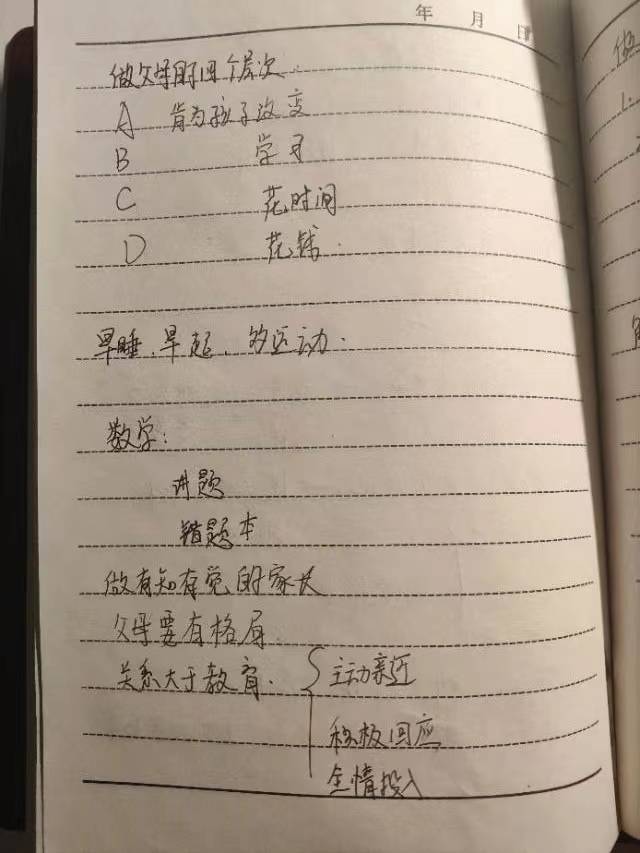 年 月 日
做父母的四个层次
A 肯为孩子改变
B 学习
C 花时间
D 花钱.
早睡、早起、多运动.
数学:
讲题
错题本
做有知有觉的家长
父母要有格局
关系大于教育. { 主动亲近
积极回应
全情投入
做
1.